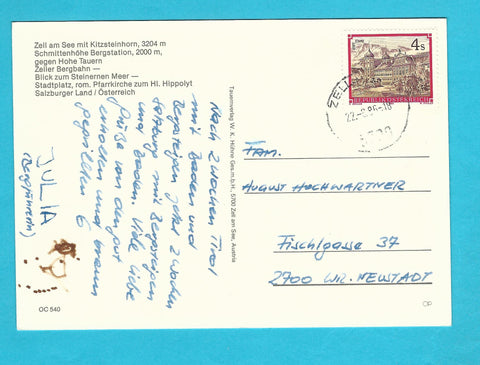 Zell am See mit Kitzsteinhorn, 3204 m
Schmittenhöhe Bergstation, 2000 m,
gegen Hohe Tauern
Zeller Bergbahn —
Blick zum Steinernen Meer —
Stadtplatz, rom. Pfarrkirche zum Hl. Hippolyt
Salzburger Land / Österreich
Nach 2 Wochen Tirol
mit Baden und
Bergsteigen jetzt 2 Wochen
Salzburg mit Bergsteigen
und Baden. Viele liebe
Grüße von den gut
erholten und braun
gebrillten 6
JULIA
(Bergführerin)
OC 540
Tauernverlag W. K. Hühne Ges.m.b.H., 5700 Zell am See, Austria
4 S
REPUBLIK ÖSTERREICH
ZELL
5700
FAM.
AUGUST HOCHWARTNER
Fischlgasse 37
2700 WR. NEUSTADT